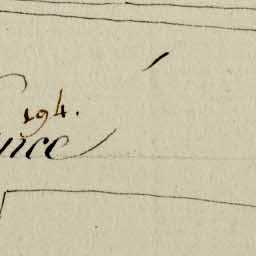 194.
nce